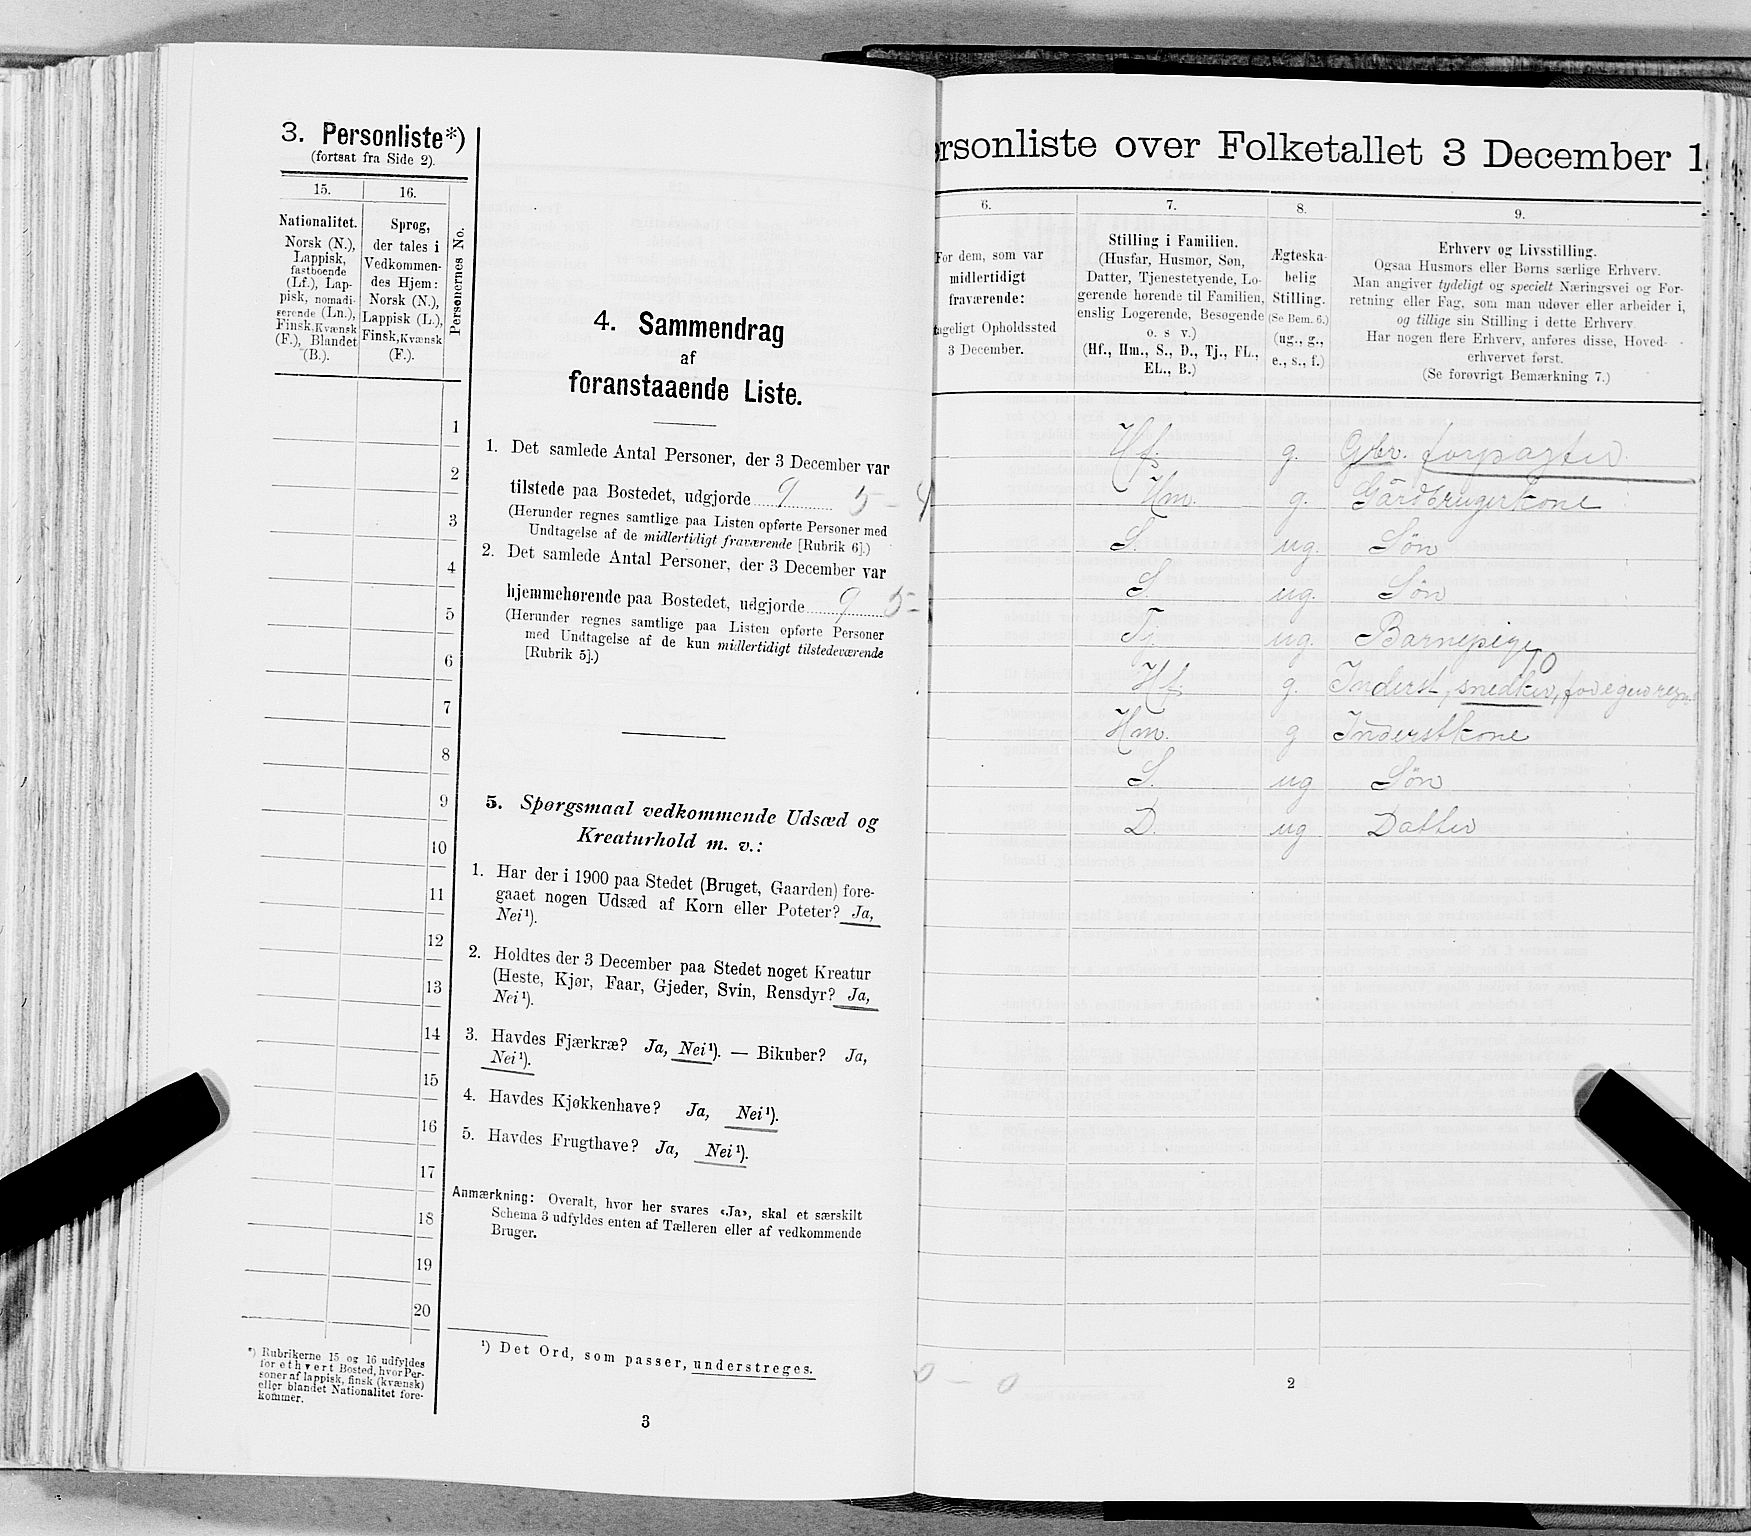 3. Personliste*)
(fortsat fra Side 2).
15.
16.
Personernes No.
Nationalitet.
Norsk (N.),
Lappisk,
fastboende
(Lf.), Lap-
pisk, nomadi-
serende (Ln.),
Finsk, Kvænsk
(F.), Blandet
(B.).
Sprog,
der tales i
Vedkommen-
des Hjem:
Norsk (N.),
Lappisk (L.),
Finsk, Kvænsk
(F.).
1
2
3
4
5
6
7
8
9
10
11
12
13
14
15
16
17
18
19
20
*) Rubrikerne 15 og 16 udfyldes
for ethvert Bosted, hvor Per-
soner af lappisk, finsk (kvænsk)
eller blandet Nationalitet fore-
kommer.
4. Sammendrag
af
foranstaaende Liste.
1. Det samlede Antal Personer, der 3 December var
tilstede paa Bostedet, udgjorde 9 5 - 4
(Herunder regnes samtlige paa Listen opførte Personer med
Undtagelse af de midlertidigt fraværende [Rubrik 6].)
2. Det samlede Antal Personer, der 3 December var
hjemmehørende paa Bostedet, udgjorde 9 5 -
(Herunder regnes samtlige paa Listen opførte Personer
med Undtagelse af de kun midlertidigt tilstedeværende
[Rubrik 5].)
5. Spørgsmaal vedkommende Udsæd og
Kreaturhold m. v.:
1. Har der i 1900 paa Stedet (Bruget, Gaarden) fore-
gaaet nogen Udsæd af Korn eller Poteter? Ja,
Nei¹).
2. Holdtes der 3 December paa Stedet noget Kreatur
(Heste, Kjør, Faar, Gjeder, Svin, Rensdyr? Ja,
Nei¹).
3. Havdes Fjærkræ? Ja, Nei¹). — Bikuber? Ja,
Nei¹).
4. Havdes Kjøkkenhave? Ja, Nei¹).
5. Havdes Frugthave? Ja, Nei¹).
Anmærkning: Overalt, hvor her svares «Ja», skal et særskilt
Schema 3 udfyldes enten af Tælleren eller af vedkommende
Bruger.
¹) Det Ord, som passer, understreges.
3
ersonliste over Folketallet 3 December 1
6.
7.
8.
9.
For dem, som var
midlertidigt
fraværende:
ageligt Opholdssted
3 December.
Stilling i Familien.
(Husfar, Husmor, Søn,
Datter, Tjenestetyende, Lo-
gerende hørende til Familien,
enslig Logerende, Besøgende
o. s v.)
(Hf., Hm., S., D., Tj., FL.,
EL., B.)
Ægteska-
belig
Stilling.
(Se Bem. 6.)
(ug., g.,
e., s., f.)
Erhverv og Livsstilling.
Ogsaa Husmors eller Børns særlige Erhverv.
Man angiver tydeligt og specielt Næringsvei og For-
retning eller Fag, som man udøver eller arbeider i,
og tillige sin Stilling i dette Erhverv.
Har nogen flere Erhverv, anføres disse, Hoved-
erhvervet først.
(Se forøvrigt Bemærkning 7.)
Hf. g. Gbr. forpagter
Hm. g. Gårdbrugerkone
S. ug. Søn
S. ug. Søn
Tj ug. Barnepige
Hf. g. Inderst, snedker, for egen regn.
Hm. g Inderstkone
S. ug Søn
D. ug Datter
0 - 0
2